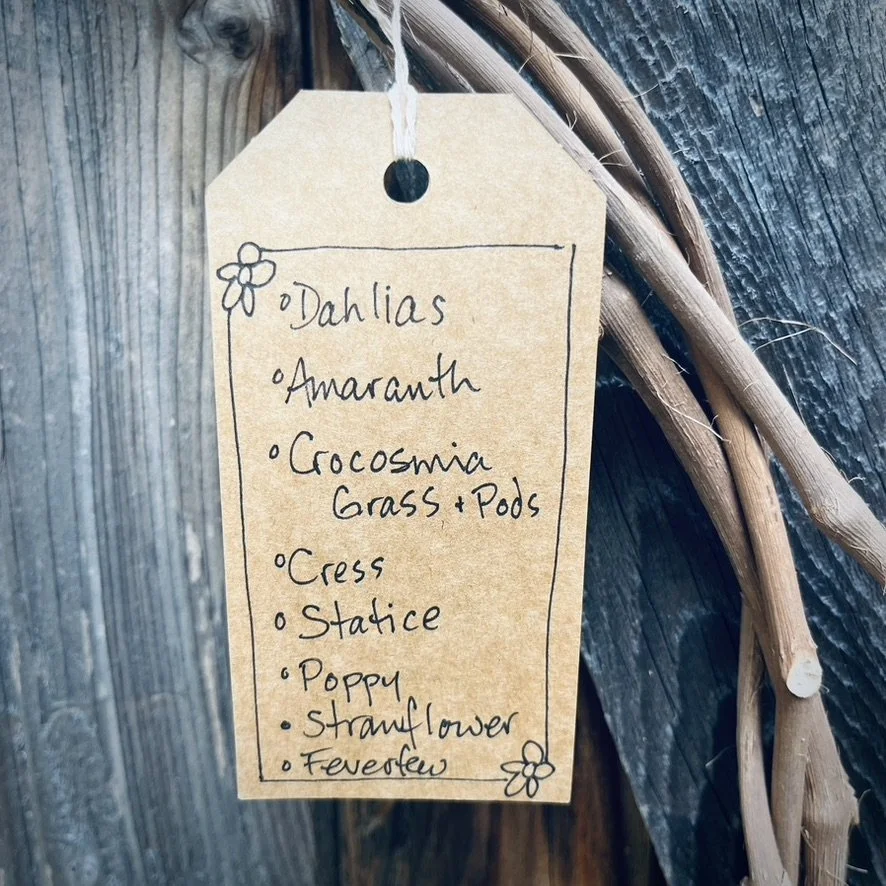 Dahlias
Amaranth
Crocosmia
Grass + Pods
Cress
Statice
Poppy
Strawflower
Feverfew